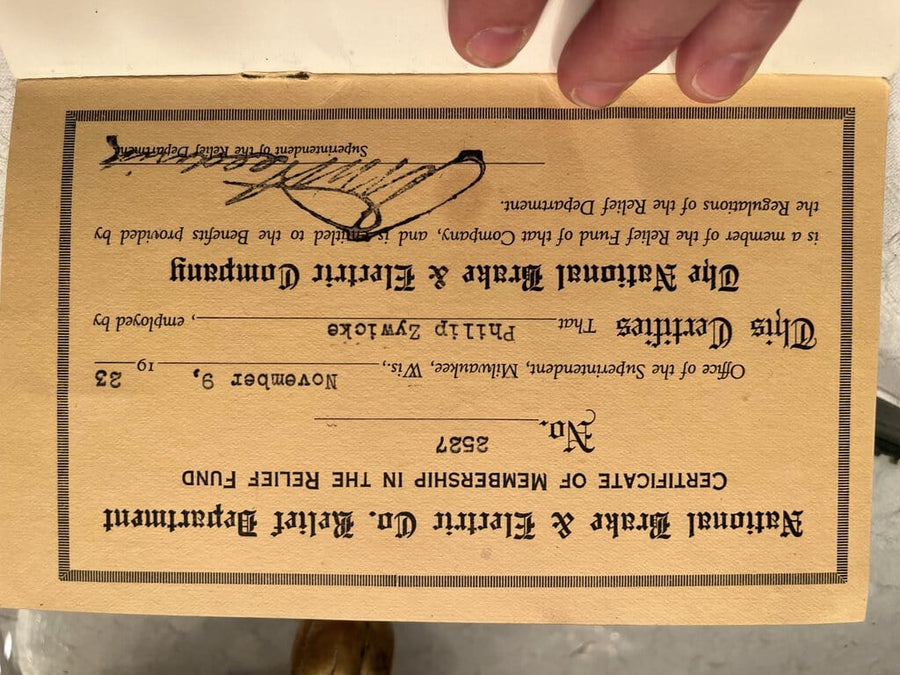 National Brake & Electric Co. Relief Department
CERTIFICATE OF MEMBERSHIP IN THE RELIEF FUND
No. 2527
Office of the Superintendent, Milwaukee, Wis., November 9, 1923
This Certifies That Philip Zywicke, employed by
The National Brake & Electric Company
is a member of the Relief Fund of that Company, and is entitled to the Benefits provided by
the Regulations of the Relief Department.
Superintendent of the Relief Department